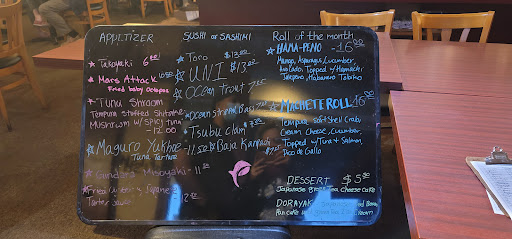 APPEtIZER
☆ Takoyaki 6.00
☆ Mars Attack
Fried baby Octopus
☆ Tuna Shroom
Tempura Stuffed Shitake
Mushroom w/ Spicy tuna
-12.00
☆ Maguro Yukhoe -11.50
Tuna Tartar
Gindara Misoyaki - 11.50
☆ Fried Oyster w/ Japanese
Tartar Sauce 12.00
SUSHI or SASHIMI
☆ Toro $12.00
☆ UNI $13.00
☆ OCEAN TROUT 7.25
☆ Tsubu clam
☆ Baja Kanpachi
Roll of the month
☆ HAMA-PENO -16.00
Mango, Asparagus, Cucumber,
Avocado, Topped w/ Hamachi,
Jalapeno, Habanero Tobiko
☆ MACHETE ROLL 16.00
Tempura Soft Shell Crab,
Cream Cheese, Cucumber,
Topped w/ Tuna & Salmon,
Pico de Gallo
DESSERT $5.00
Japanese green Tea Cheese cake
DORAYAKI
Pancake